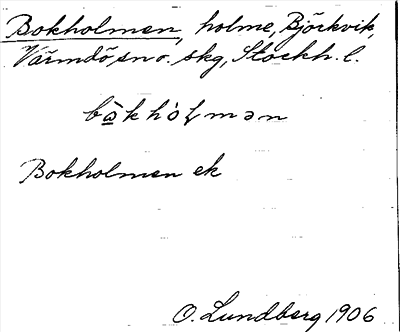 Bokholmen, holme, Björkvik,
Värmdö, sn o. skg, Stockh. l.
bo̱̊khòɭmən
Bokholmen ek
O. Lundberg 1906